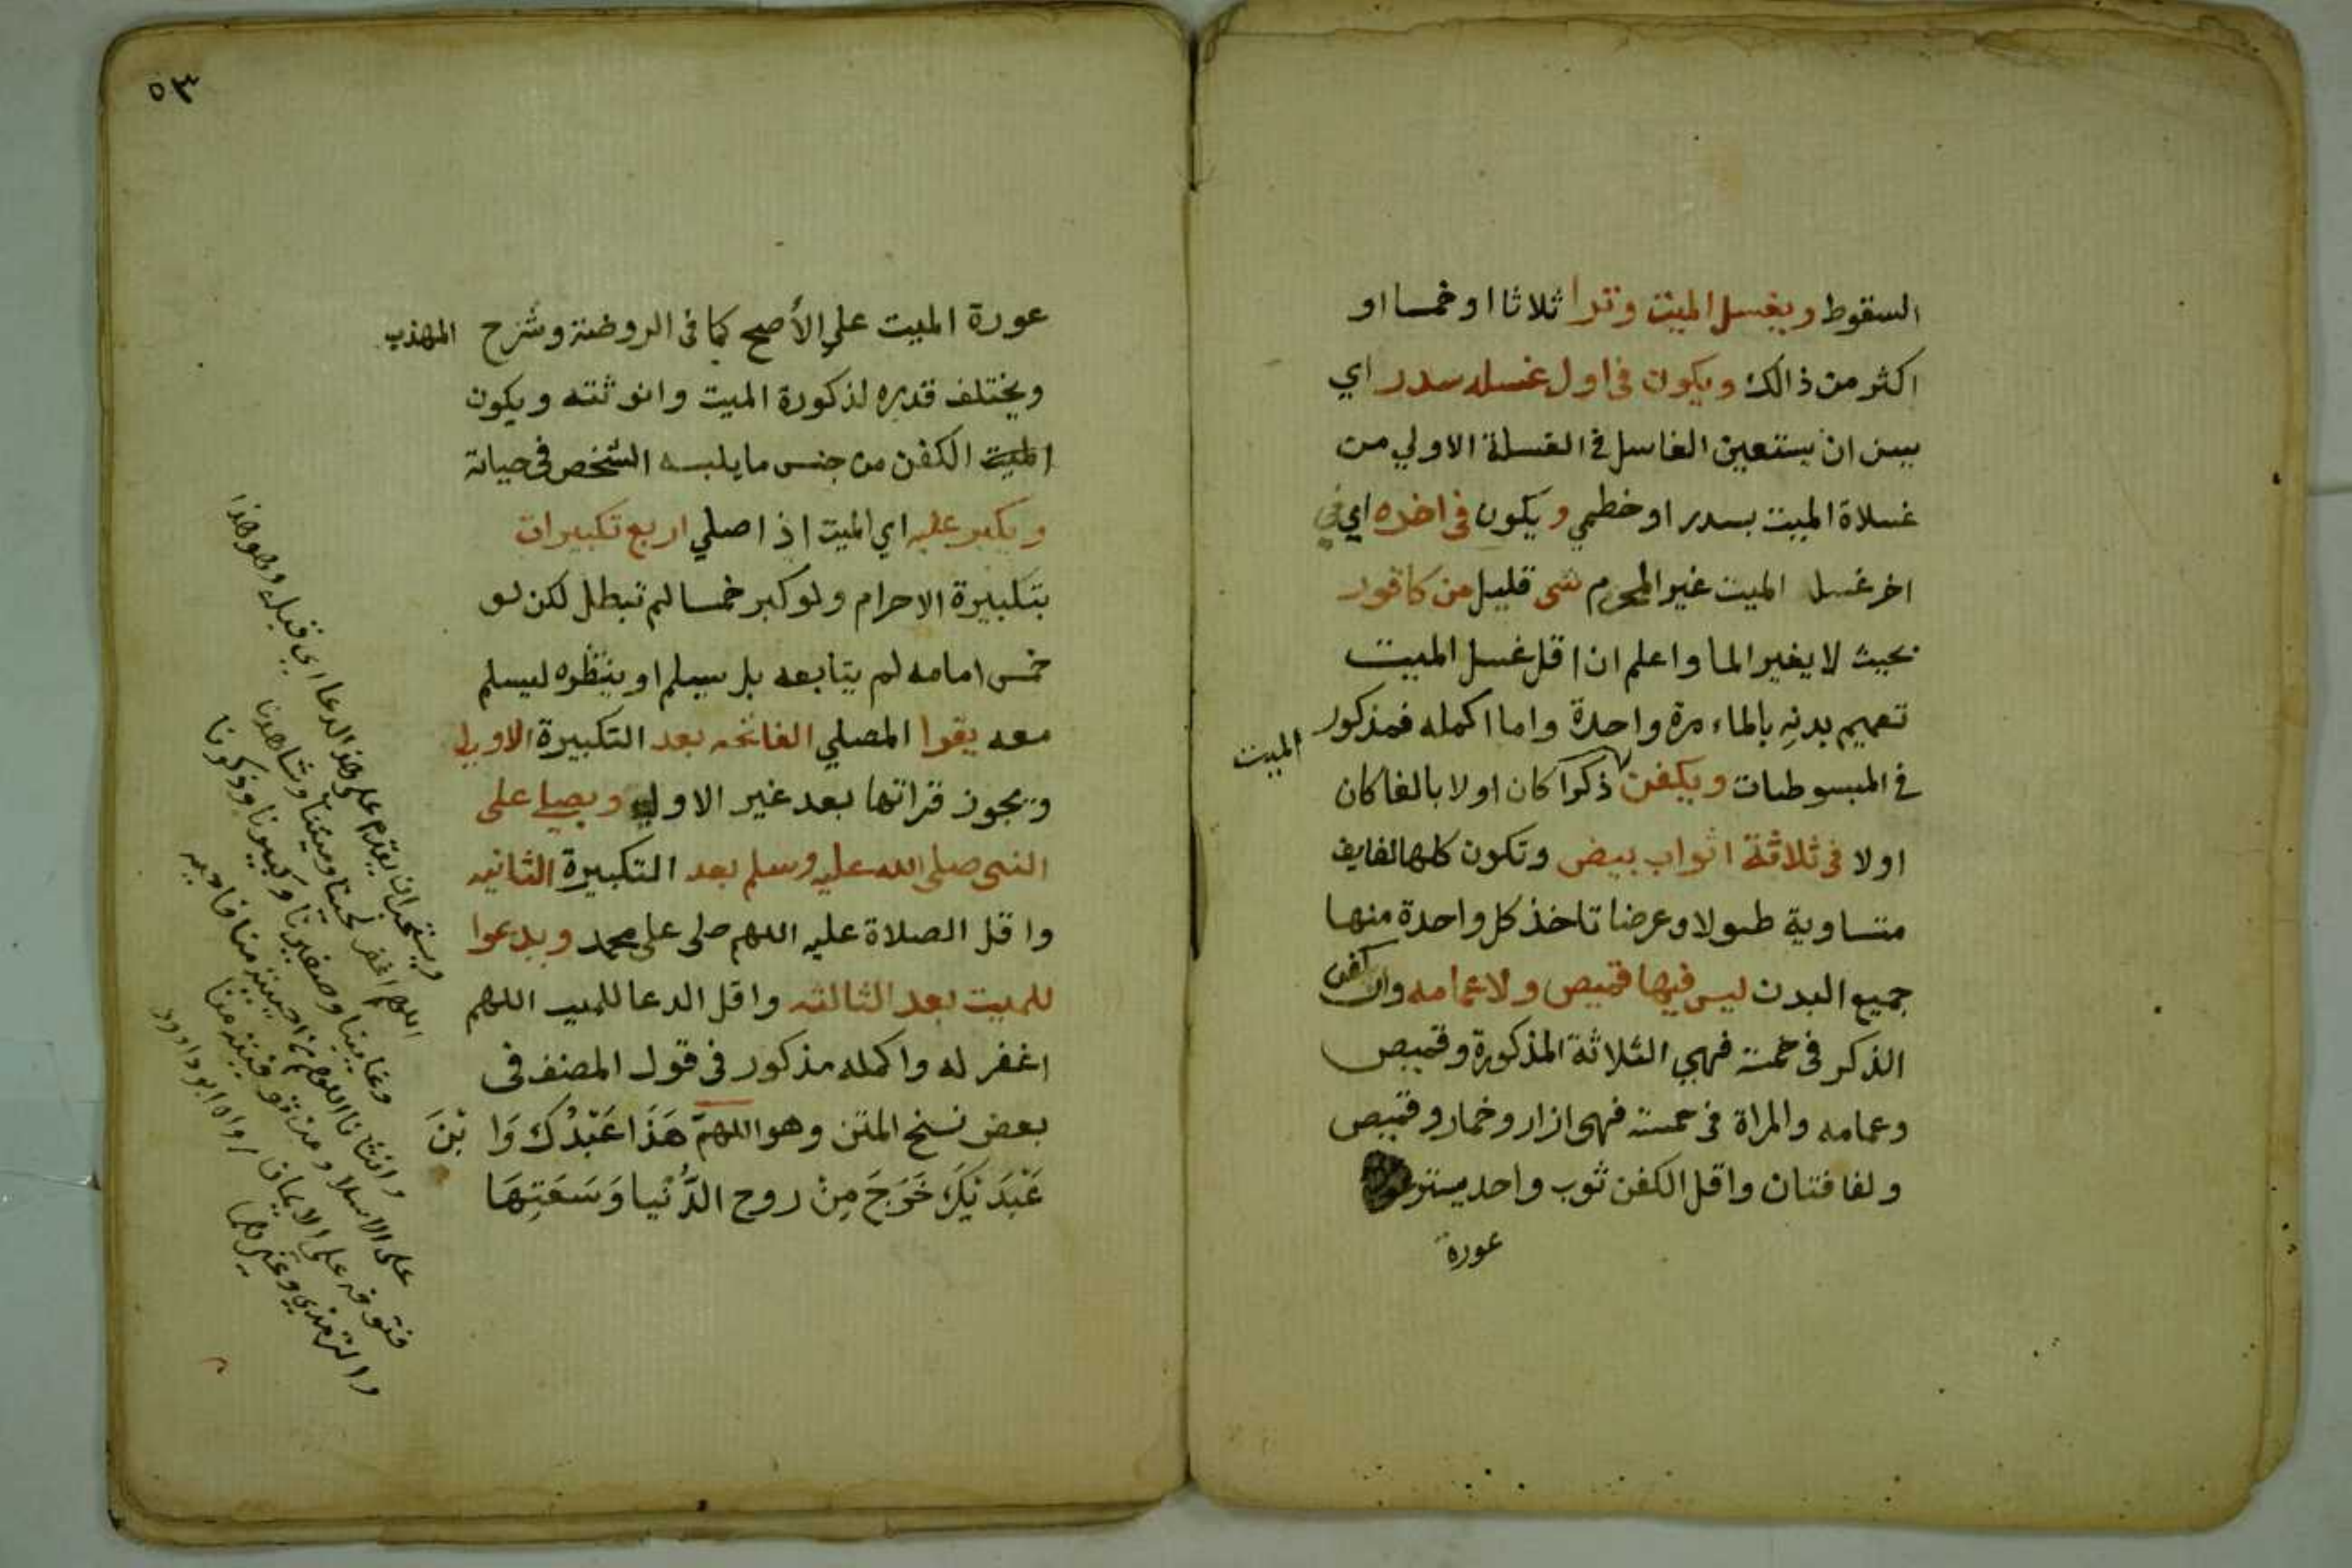 السقوط ويغسل الميت وترا ثلاثا او خمسا او
اكثر من ذالك ويكون في اول غسله سدر اي
يسن ان يستعين الغاسل في الغسلة الاولي من
غسلاة الميت بسدر او خطمي ويكون في اخره اي في
اخر غسل الميت غير المحرم شى قليل من كافور
بحيث لا يغير الما واعلم ان اقل غسل الميت
تعميم بدنه بالماء مرة واحدة واما اكمله فمذكور
في المبسوطات ويكفن الميت ذكرا كان اولا بالغا كان
اولا في ثلاثة اثواب بيض وتكون كلها لفايف
متساوية طولا وعرضا تاخذ كل واحدة منها
جميع البدن ليس فيها قميص ولا عمامه وان كفن
الذكر في خمسة فهي الثلاثة المذكورة وقميص
وعمامه والمراة في خمسة فهي ازار وخمار وقميص
ولفافتان واقل الكفن ثوب واحد يستر
عورة
٥٣
عورة الميت علي الأصح كما في الروضة وشرح المهذب
ويختلف قدره لذكورة الميت وانوثته ويكون
الميت الكفن من جنس ما يلبسه الشخص في حياته
ويكبر عليه اي الميت اذ اصلي اربع تكبيرات
بتكبيرة الاحرام ولو كبر خمسا لم تبطل لكن لو
خمس امامه لم يتابعه بل يسلم او ينتظره ليسلم
معه يقوا المصلي الفاتحه بعد التكبيرة الاولي
ويجوز قراتها بعد غير الاولي ويصلي على
النبى صلى الله عليه وسلم بعد التكبيرة الثانيه
واقل الصلاة عليه اللهم صلى على محمد ويدعوا
للميت بعد الثالثه واقل الدعا للميت اللهم
اغفر له واكمله مذكور في قول المصنف في
بعض نسخ المتن وهو اللهمّ هَذَا عَبْدُكَ وَابْنَ
عَبْدَيْكَ خَرَجَ مِنْ روح الدُّنْيا وَسَعَتِهَا
ويستحب ان يقدم على هذ الدعا اي قبله وهو هذا
اللهم اغفر لحينا وميتنا وشاهدنا
وغايبنا وصغيرنا وكبيرنا وذكرنا
وانثانا اللهم من احييته منا فاحييه
على الاسلا ومن توفيته منا
فتوفه على الايمان رواه ابو داوود
والترمذي وغيرهما